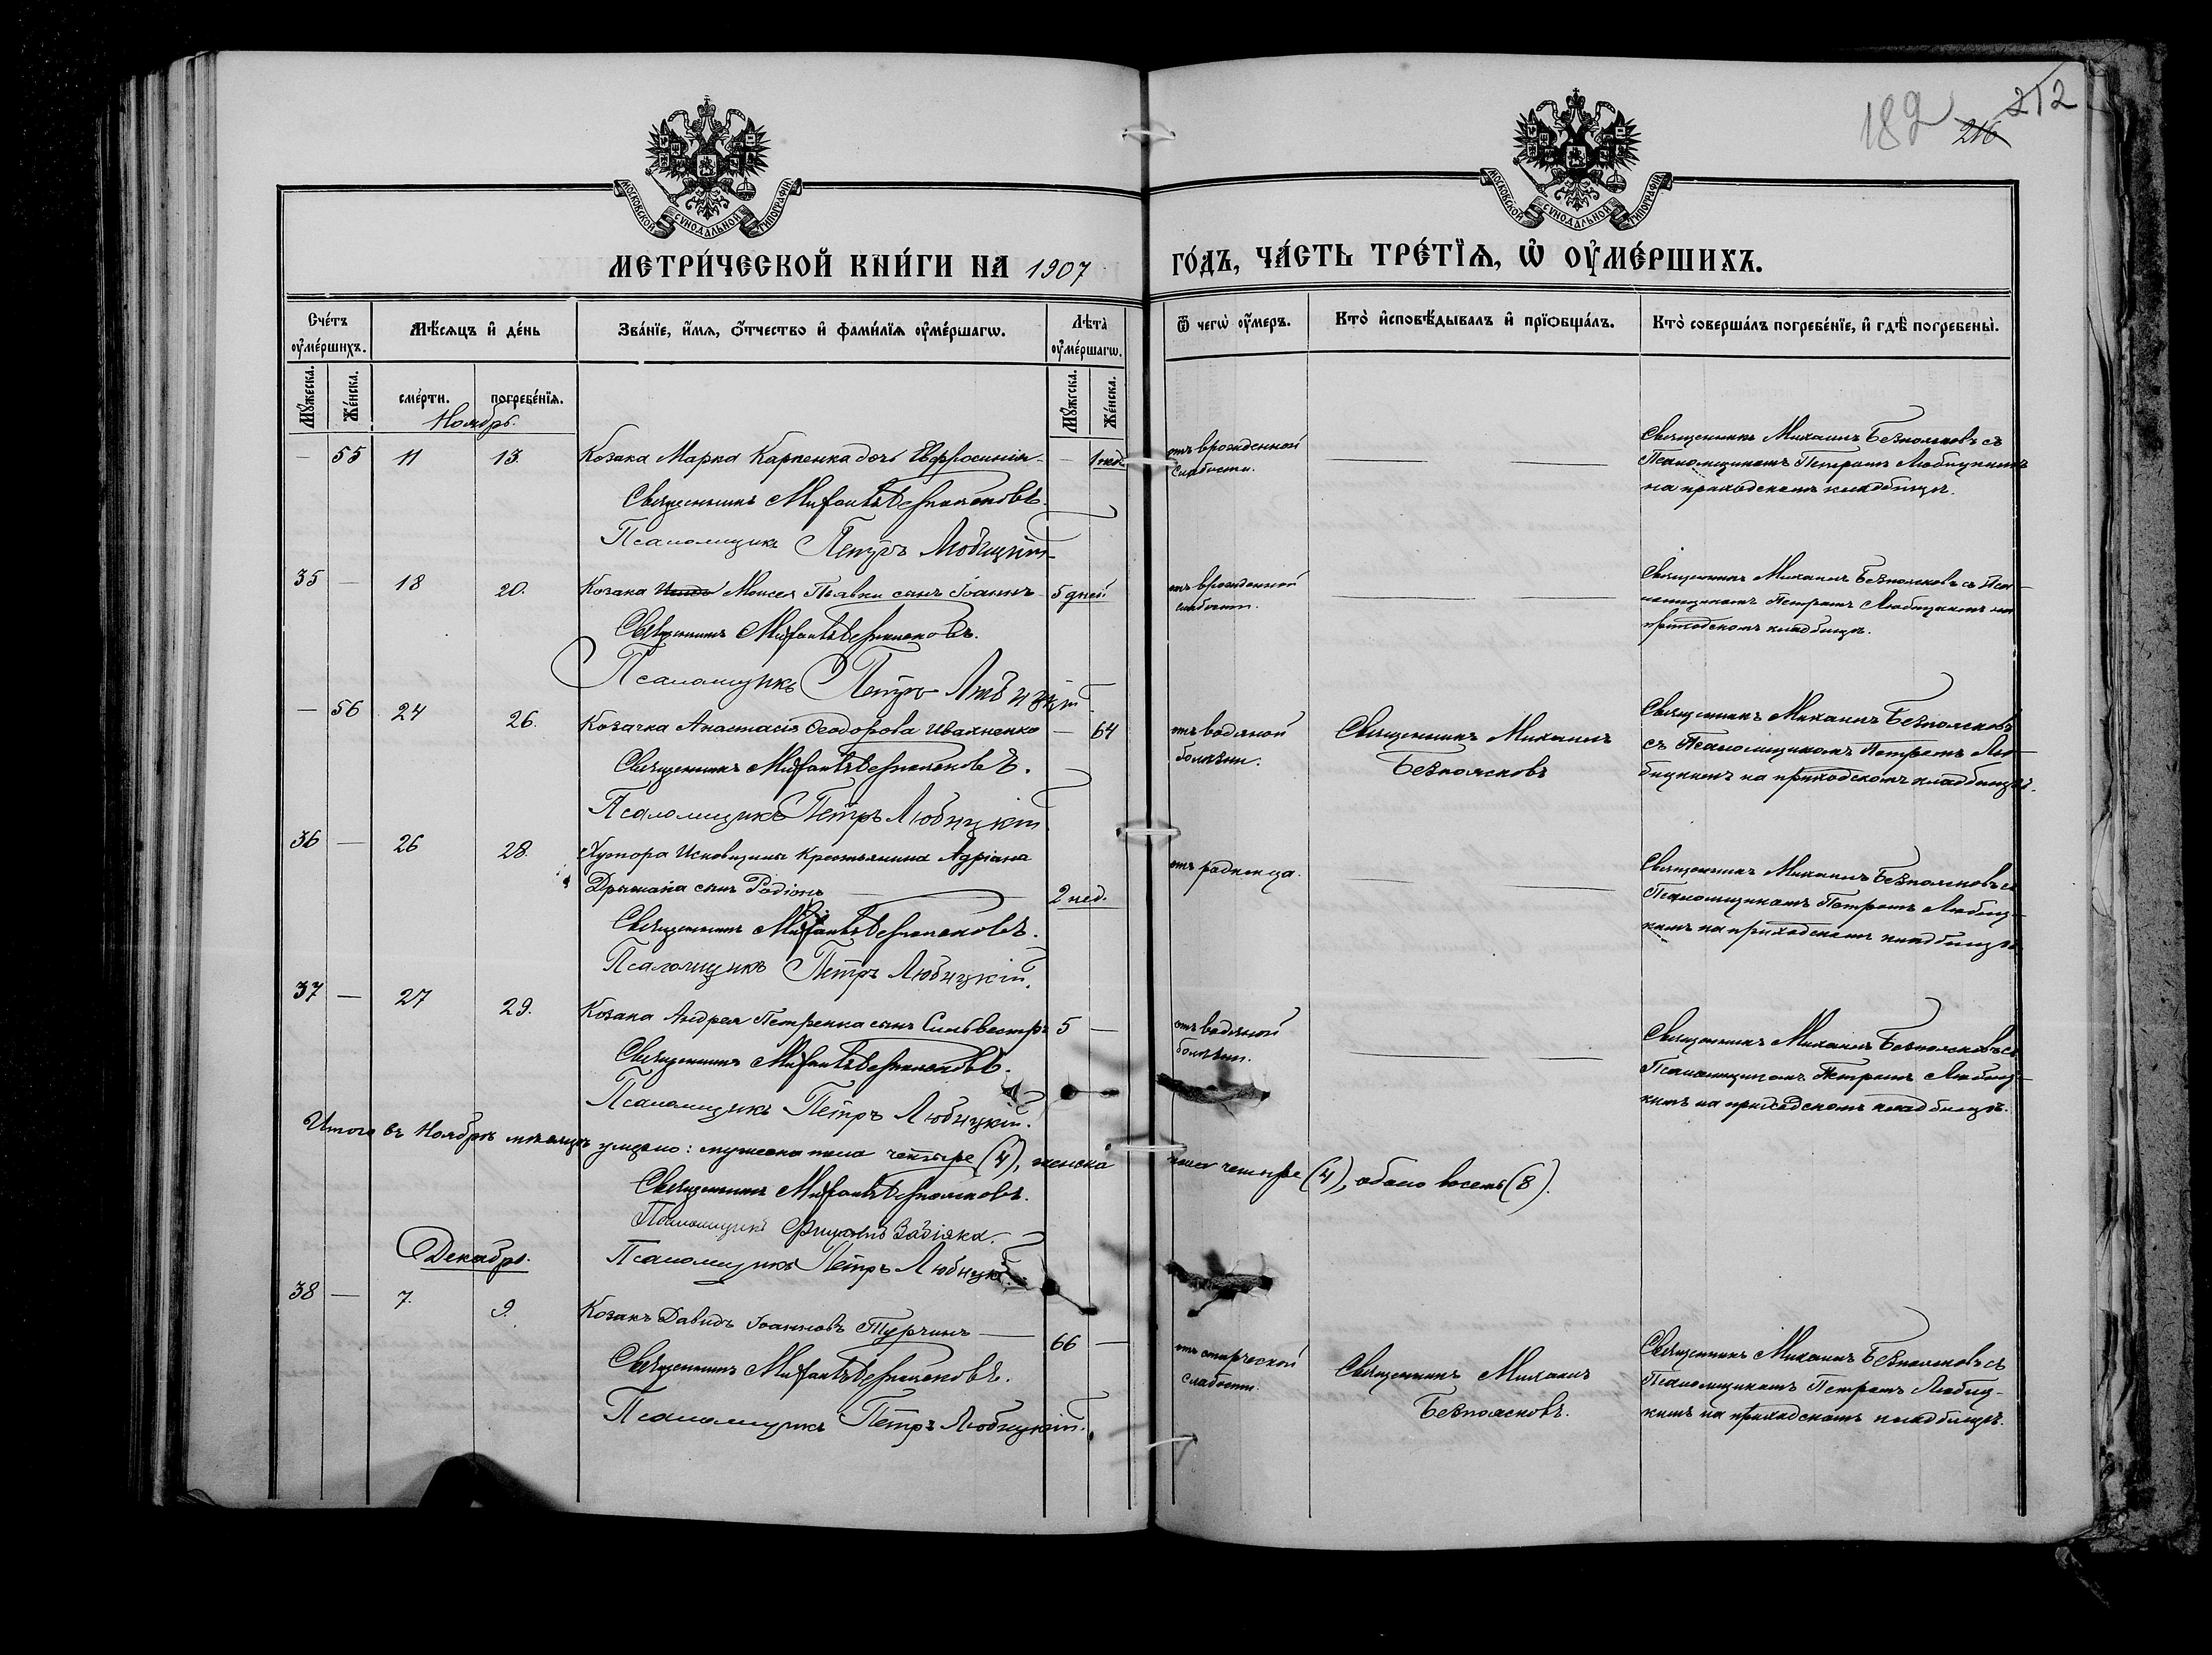 189 216 212
МОСКОВСКОЙ СѴНОДАЛЬНОЙ ТИПОГРАФІИ
МОСКОВСКОЙ СѴНОДАЛЬНОЙ ТИПОГРАФІИ
МЕТРИ́ЧЕСКОЙ КНИ́ГИ НА 1907 ГО́ДЪ, ЧА́СТЬ ТРЕ́ТЇѦ, Ѡ҆ ОУ҆МЕ́РШИХЪ.
Сче́тъ оу҆ме́ршихъ.
Мѣ́сѧцъ и҆ де́нь
Зва́нїе, и҆́мѧ, ѻ҆́тчество и҆ фами́лїѧ оу҆ме́ршагѡ.
Лѣ́та оу҆ме́ршагѡ.
Ѿ чегѡ̀ оу҆́меръ.
Кто̀ и҆сповѣ́дывалъ и҆ прїѡбща́лъ.
Кто̀ соверша́лъ погребе́нїе, и҆ гдѣ̀ погребены̀.
Мꙋ́жеска. Же́нска. сме́рти. погребе́нїѧ. Мꙋ́жеска. Же́нска.
Ноябрь.
— 55 11 13. Козака Марка Карпенка дочь Евфросинія — 1 нед.
Священникъ Михаилъ Безпоясновъ.
Псаломщикъ Петръ Любицкій
отъ врожденной
слабости.
Священникъ Михаилъ Безпоясновъ съ
Псаломщикомъ Петромъ Любицкимъ
на приходскомъ кладбищѣ.
35 — 18 20. Козака Моисея Піявки сынъ Іоаннъ 5 дней
Священникъ Михаилъ Безпоясновъ.
Псаломщикъ Петръ Любицкій
отъ врожденной
слабости.
Священникъ Михаилъ Безпоясновъ съ Пса-
ломщикомъ Петромъ Любицкимъ на
приходскомъ кладбищѣ.
— 56 24 26. Козачка Анастасія Ѳеодорова Ивахненко — 64
Священникъ Михаилъ Безпоясновъ.
Псаломщикъ Петръ Любицкій
отъ водяной
болѣзни.
Священникъ Михаилъ
Безпоясновъ
Священникъ Михаилъ Безпоясновъ
съ Псаломщикомъ Петромъ Лю-
бицкимъ на приходскомъ кладбищѣ.
36 — 26 28. Хутора Исковщины крестьянина Адріана
сынъ Родіонъ 2 нед.
Священникъ Михаилъ Безпоясновъ.
Псаломщикъ Петръ Любицкій.
отъ родимца.
Священникъ Михаилъ Безпоясновъ съ
Псаломщикомъ Петромъ Любиц-
кимъ на приходскомъ кладбищѣ.
37 — 27 29. Козака Андрея Петренка сынъ Сильвестръ 5 —
Священникъ Михаилъ Безпоясновъ.
Псаломщикъ Петръ Любицкій.
отъ водяной
болѣзни.
Священникъ Михаилъ Безпоясновъ съ
Псаломщикомъ Петромъ Любиц-
кимъ на приходскомъ кладбищѣ.
Итого въ Ноябрѣ мѣсяцѣ умерло: мужеска пола четыре (4), женска пола четыре (4), обоего восемь (8).
Священникъ Михаилъ Безпоясновъ.
Псаломщикъ Филиппъ Забіяка.
Псаломщикъ Петръ Любицкій
Декабрь.
38 — 7. 9. Козакъ Давидъ Іоанновъ Турчинъ — 66 —
Священникъ Михаилъ Безпоясновъ.
Псаломщикъ Петръ Любицкій.
отъ старческой
слабости.
Священникъ Михаилъ
Безпоясновъ.
Священникъ Михаилъ Безпоясновъ съ
Псаломщикомъ Петромъ Любиц-
кимъ на приходскомъ кладбищѣ.